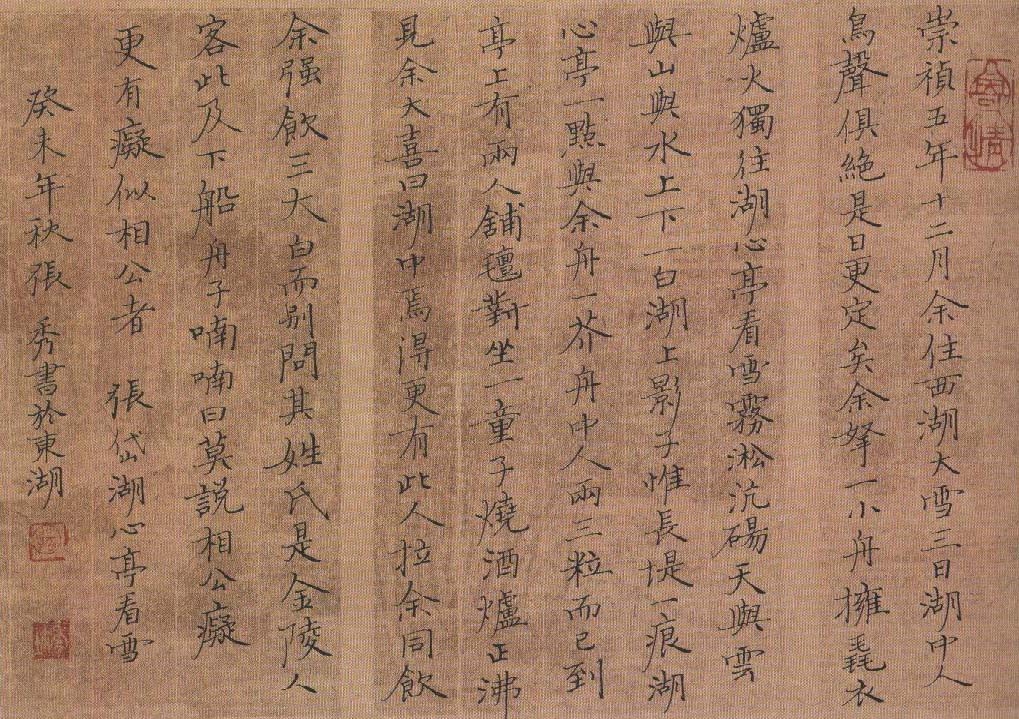 崇禎五年十二月余住西湖大雪三日湖中人
鳥聲俱絕是日更定矣余拏一小舟擁毳衣
爐火獨往湖心亭看雪霧淞沆碭天與雲
與山與水上下一白湖上影子惟長堤一痕湖
心亭一點與余舟一芥舟中人兩三粒而已到
亭上有兩人舖氊對坐一童子燒酒爐正沸
見余大喜曰湖中焉得更有此人拉余同飲
余强飲三大白而别問其姓氏是金陵人
客此及下船舟子喃喃曰莫説相公癡
更有癡似相公者 張岱湖心亭看雪
癸未年秋張 秀書於東湖